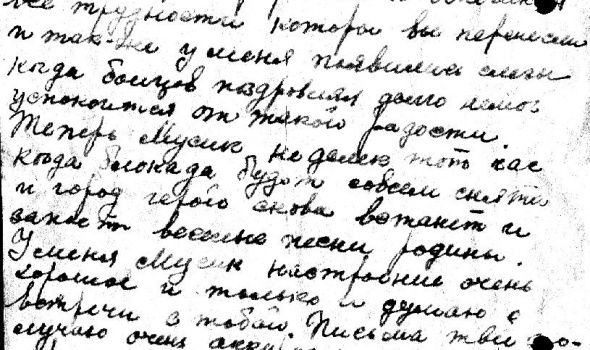 все трудности которые вы перенесли
и так-же у меня появились слезы
когда бойцов поздровлял долго немог
успокоится от такой радости.
Теперь Мусик не далек тот час
когда блокада будет совсем снята
и город герой снова встанет и
запоет веселые песни родины.
У меня Мусик настроение очень
хорошое и только и думаю о
встречи с тобой. Письма твои по-
лучаю очень